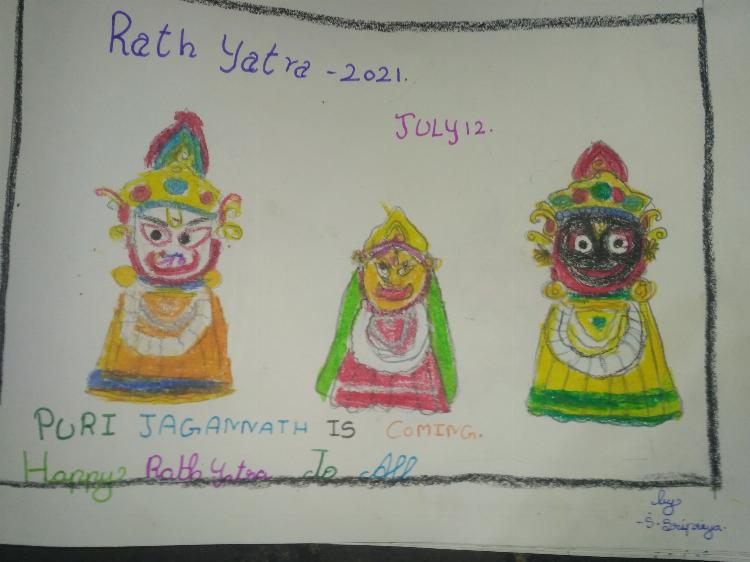 Rath Yatra - 2021.
JULY 12.
PURI JAGANNATH IS COMING.
Happy Rath Yatra To All
by
- S. Sripriya.